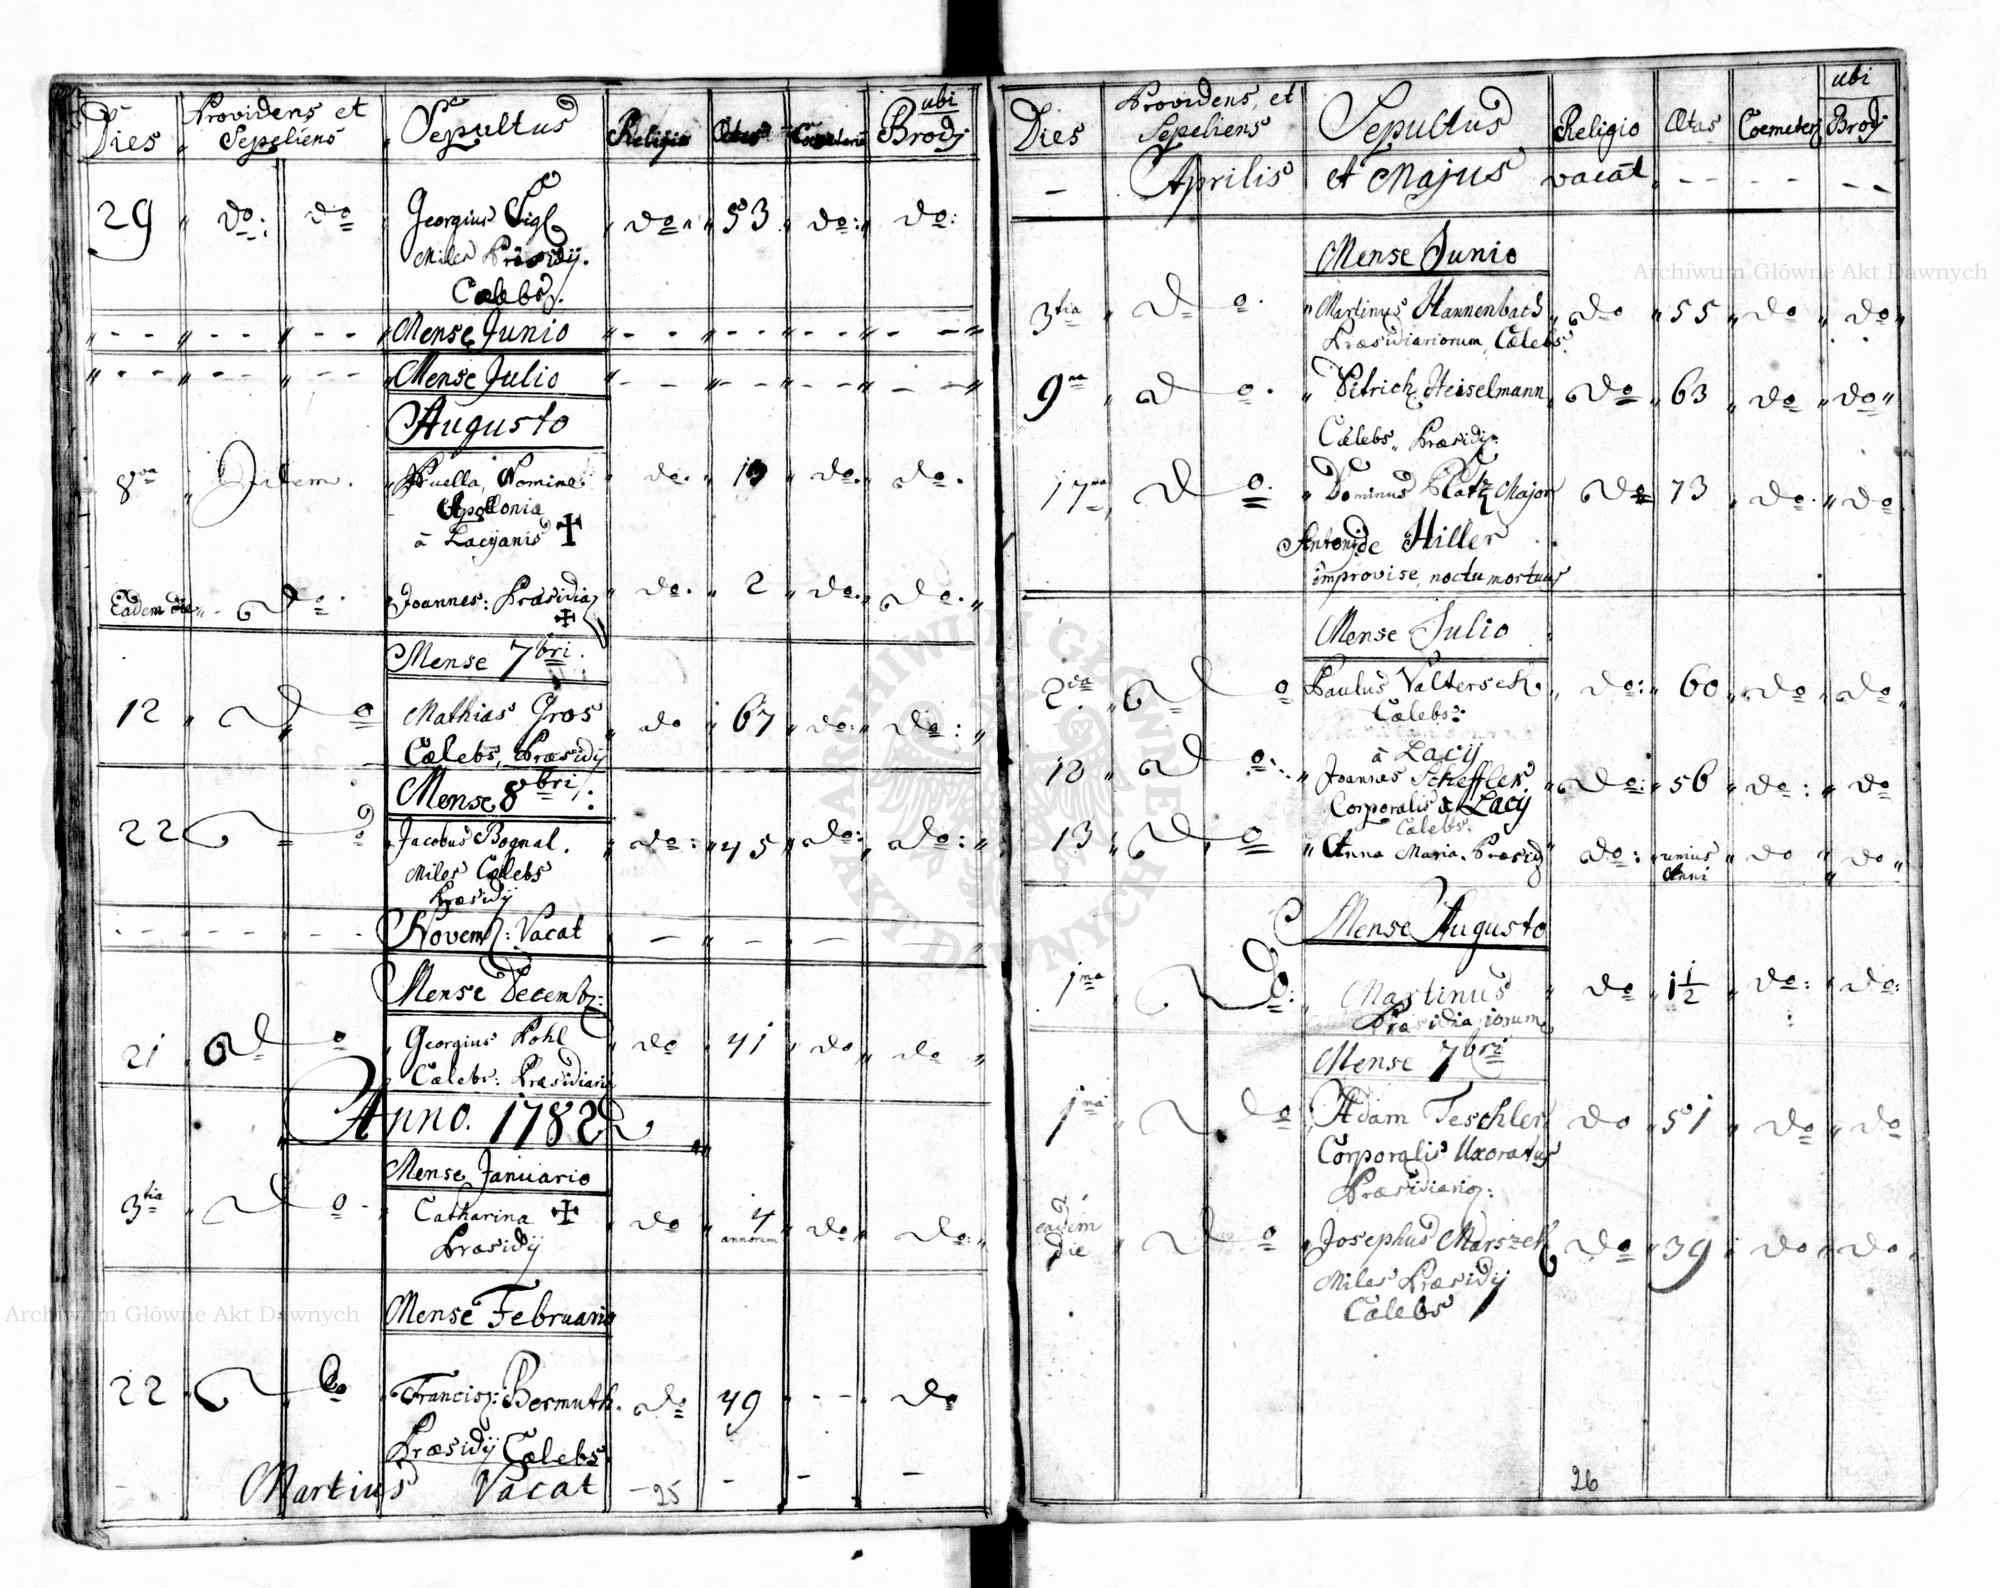 Dies Providens et Sepeliens Sepultus Religio Ætas Coemeterium ubi Brodÿ
29 do: do Georgius Sigl do 53 do: do:
Miles Præsidÿ.
Cælebs.
Mense Junio
Mense Julio
Augusto
8va Idem. Puella, Nomine do. do. do.
Apollonia
à Lacÿanis
Eadem die do Joannes: Præsidia do. 2 do. do.
Mense 7bri.
12 do Mathias Gros do 67 do: do:
Cælebs, Præsidÿ
Mense 8bri:
22 do Jacobus Bognal. do: 45 do: do:
Miles Cælebs
Præsidÿ
Novemb: Vacat
Mense Decemb:
21 do Georgius Pohl do 41 do do
Cælebs: Præsidiari
Anno. 1782
Mense Januario
3tia do Catharina do 4 do do:
Præsidÿ annorum
Mense Februario
22 do Francisc: Bermuth. do 49 - - do
Præsidÿ Cælebs.
Martius Vacat
25
Dies Providens, et Sepeliens Sepultus Religio Ætas Coemeter ubi Brodÿ
Aprilis et Majus vacat
Mense Junio
3tia do. Martinus Hannenbach do 55 do do
Præsidiariorum, Cælebs
9na do. Dietrich Heiselmann do 63 do do
Cælebs, Præsidÿ:
17ma do. Dominus Platz Major do 73 do. do
Antoni de Hiller
improvise, noctu mortuus
Mense Julio
2da do Paulus Valterseck do: 60 do do
Cælebs:
à Lacÿ
do: Joannes Scheffler do: 56 do: do
Corporalis à Lacÿ
Cælebs.
13 do Anna Maria. Præsidÿ do: unius do do
Anni
Mense Augusto
1ma do: Martinus do 1 1/2 do: do:
Præsidiariorum
Mense 7bri
1ma do Adam Teschler do 51 do do
Corporalis Uxoratus
Præsidiario:
eadem die do Josephus Marszek do 39 do do
Miles Præsidÿ
Cælebs
26
Archiwum Główne Akt Dawnych
Archiwum Główne Akt Dawnych
ARCHIWUM GŁÓWNE AKT DAWNYCH